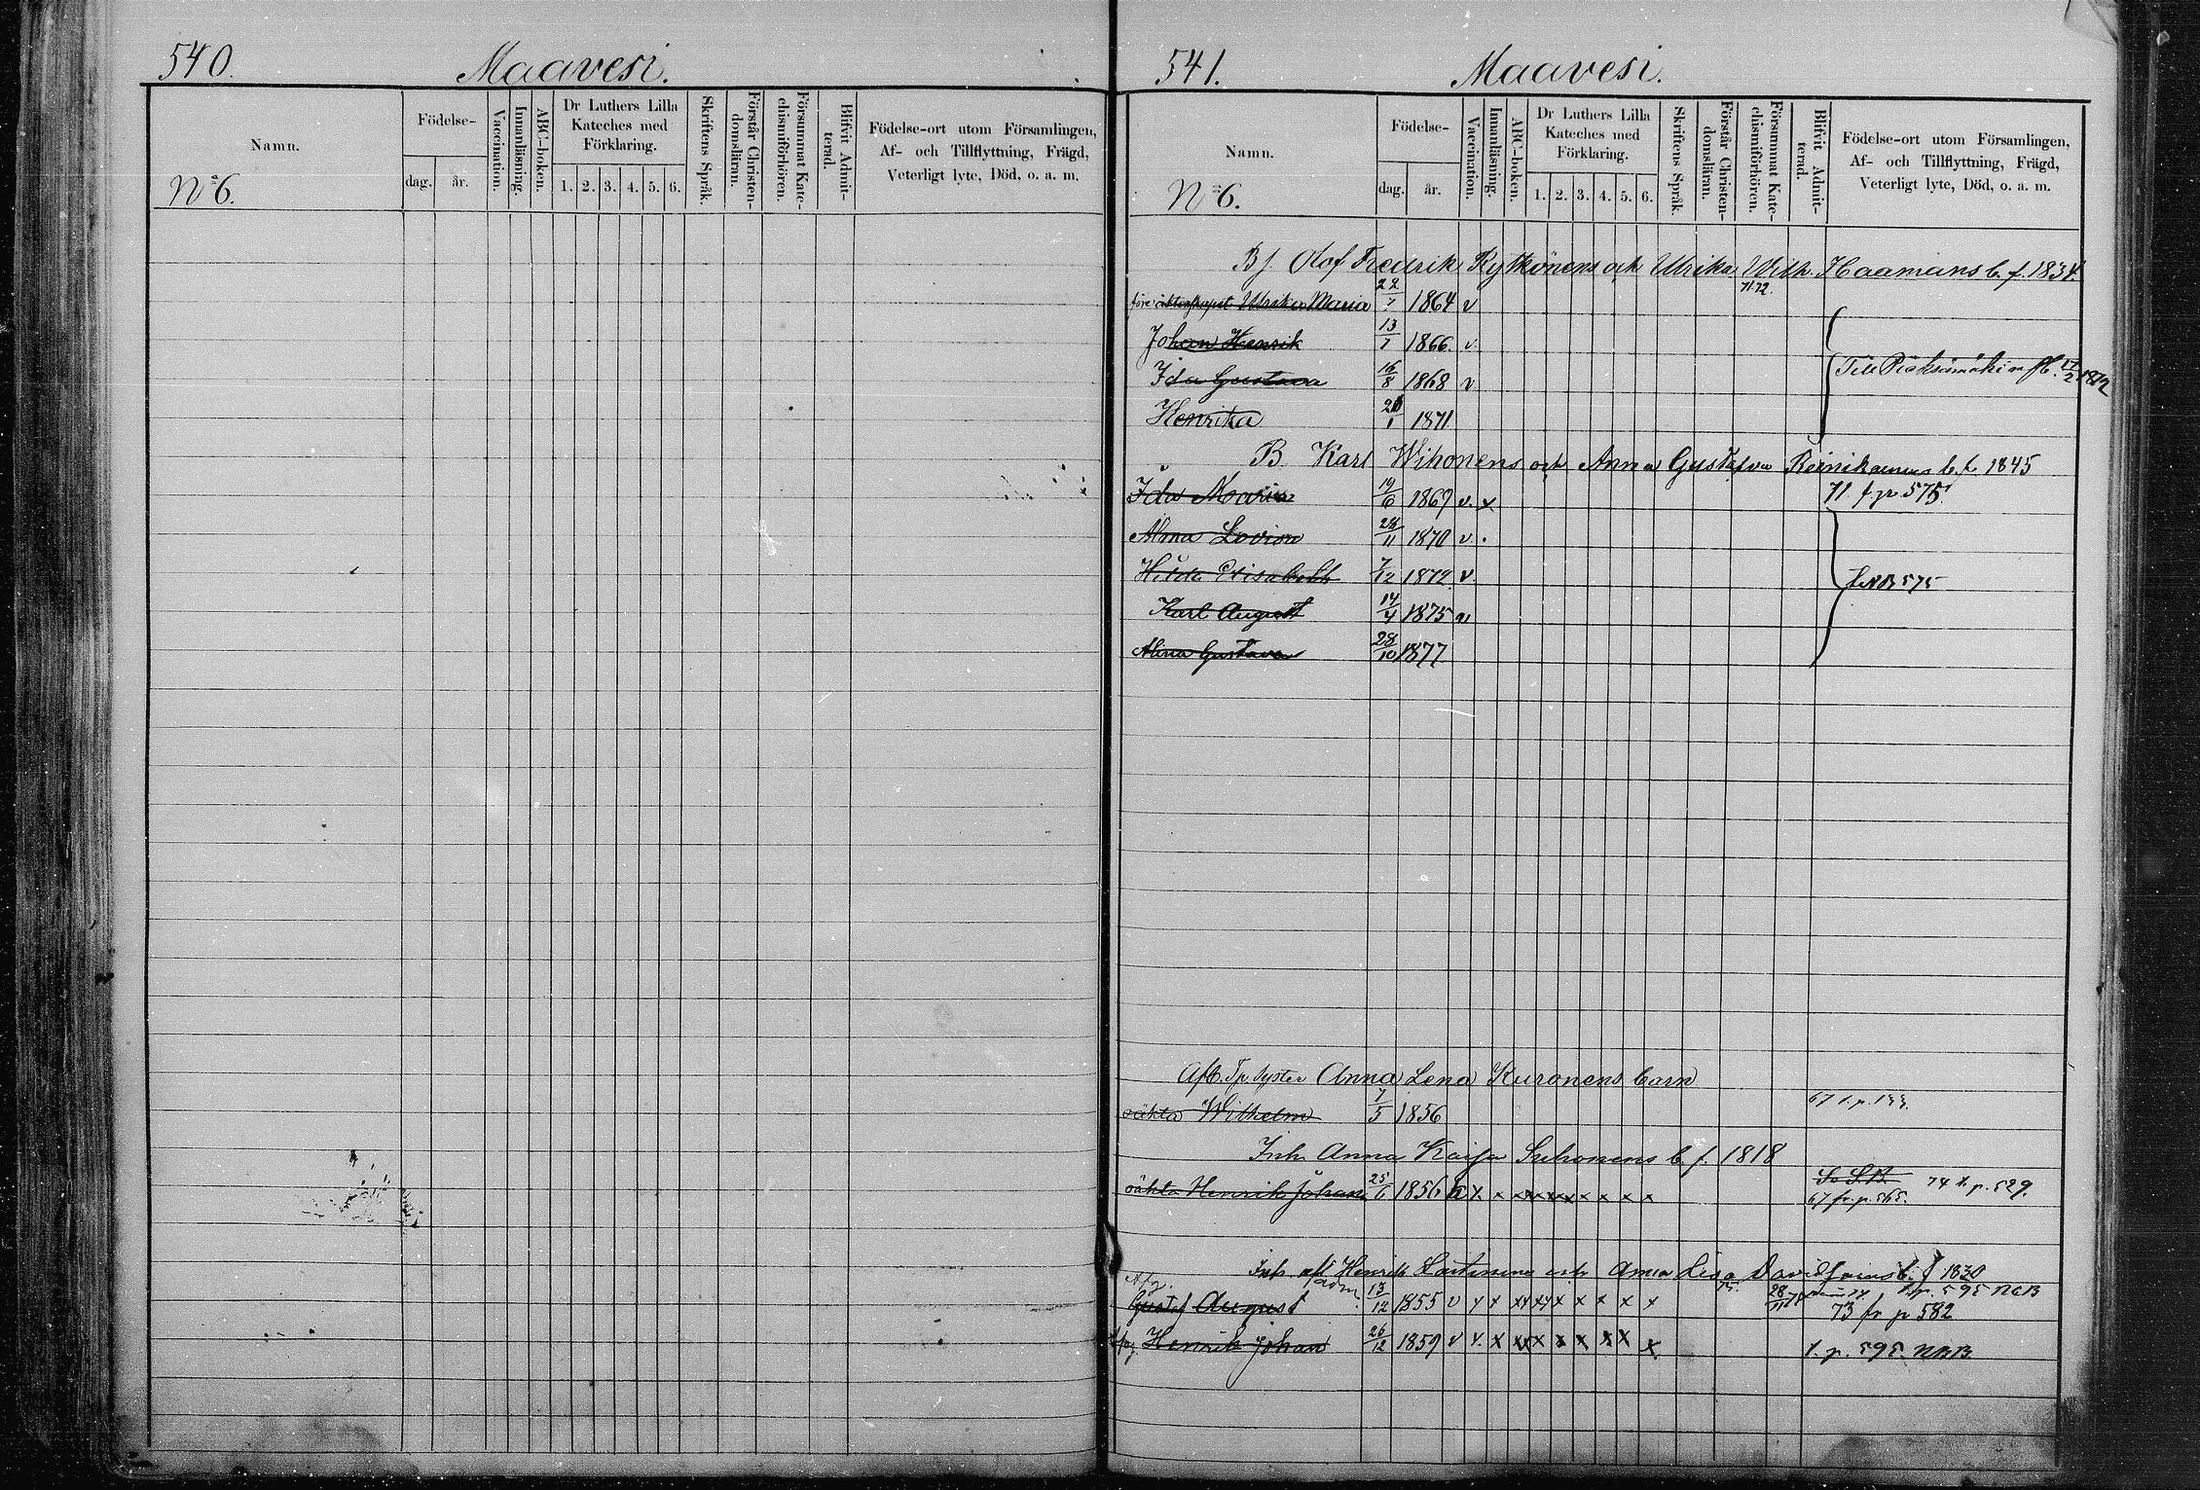 540.
Maavesi.
Namn.
Födelse-
dag. år.
Vaccination.
Innanläsning.
ABC-boken.
Dr Luthers Lilla
Kateches med
Förklaring.
1. 2. 3. 4. 5. 6.
Skriftens Språk.
Förstår Christen-
domsläran.
Försummat Kate-
chismiförhören.
Blifvit Admit-
terad.
Födelse-ort utom Församlingen,
Af- och Tillflyttning, Frägd,
Veterligt lyte, Död, o. a. m.
No 6.
541.
Maavesi.
Namn.
Födelse-
dag. år.
Vaccination.
Innanläsning.
ABC-boken.
Dr Luthers Lilla
Kateches med
Förklaring.
1. 2. 3. 4. 5. 6.
Skriftens Språk.
Förstår Christen-
domsläran.
Försummat Kate-
chismiförhören.
Blifvit Admit-
terad.
Födelse-ort utom Församlingen,
Af- och Tillflyttning, Frägd,
Veterligt lyte, Död, o. a. m.
No 6.
Bj. Olof Fredrik Rytkönens och Ulrika Wilh. Haamans b. f. 1834
71.72.
Ulrika Maria 1864 v
Johan Henrik 13/1 1866. v.
Ida Gustava 16/8 1868 v Till Pieksämäki
Henrika 1871
B. Karl Wihonens och Anna Gustafva Reinikainens b. f. 1845
Ida Maria 19/6 1869 v. x 71 f. p 575.
Alma Lovisa 28/11 1870 v.
Hilda Elisabeth 7/12 1872 v. 575
Karl August 14/4 1875 v
Alina Gustava 28/10 1877
Afl. Syster Anna Lena Kuronens barn
oäkta Wilhelm 7/5 1856
Inh. Anna Kaisa Suhonens b. f. 1818
oäkta Henrik Johan 25/6 1856 x x x x x x x x x 74 t. p. 529.
67 fr. p. 565.
Henrik och Anna Lisa Davidsains b. f 1830
Gustaf August 13/12 1855 v x x x x x x x x x x 28/11
73 fr p 582
Henrik Johan 26/12 1859 v x x x x x x x x x x t. p. 595 NBB